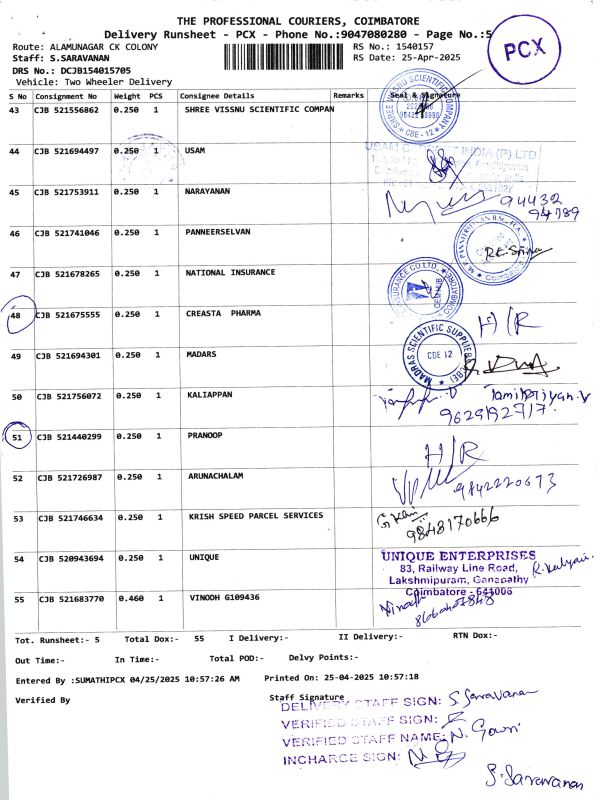 THE PROFESSIONAL COURIERS, COIMBATORE
Delivery Runsheet - PCX - Phone No.:9047080280 - Page No.:5
PCX
Route: ALAMUNAGAR CK COLONY
RS No.: 1540157
Staff: S.SARAVANAN
RS Date: 25-Apr-2025
DRS No.: DCJB154015705
Vehicle: Two Wheeler Delivery
S No Consignment No Weight PCS Consignee Details Remarks Seal & Signature
43 CJB 521556862 0.250 1 SHREE VISSNU SCIENTIFIC COMPAN
SHREE VISSNU SCIENTIFIC COMPANY
CBE - 12
44 CJB 521694497 0.250 1 USAM
INDIA (P) LTD
45 CJB 521753911 0.250 1 NARAYANAN
94432
94789
46 CJB 521741046 0.250 1 PANNEERSELVAN
47 CJB 521678265 0.250 1 NATIONAL INSURANCE
INSURANCE CO.LTD.
48 CJB 521675555 0.250 1 CREASTA PHARMA
H/R
49 CJB 521694301 0.250 1 MADARS
MADRAS SCIENTIFIC SUPPLIERS
CBE 12
50 CJB 521756072 0.250 1 KALIAPPAN
Tamilpriyan.V
9629192717.
51 CJB 521440299 0.250 1 PRANOOP
H/R
52 CJB 521726987 0.250 1 ARUNACHALAM
9842220673
53 CJB 521746634 0.250 1 KRISH SPEED PARCEL SERVICES
9848170666
54 CJB 520943694 0.250 1 UNIQUE
UNIQUE ENTERPRISES
83, Railway Line Road,
Lakshmipuram, Ganapathy
Coimbatore - 641006
R. Kalyani.
55 CJB 521683770 0.460 1 VINODH G109436
Vinodh
Tot. Runsheet:- 5 Total Dox:- 55 I Delivery:- II Delivery:- RTN Dox:-
Out Time:- In Time:- Total POD:- Delvy Points:-
Entered By :SUMATHIPCX 04/25/2025 10:57:26 AM Printed On: 25-04-2025 10:57:18
Verified By Staff Signature
DELIVERY STAFF SIGN: S. Saravanan
VERIFIED STAFF SIGN:
VERIFIED STAFF NAME: N. Gowri
INCHARGE SIGN:
S. Saravanan